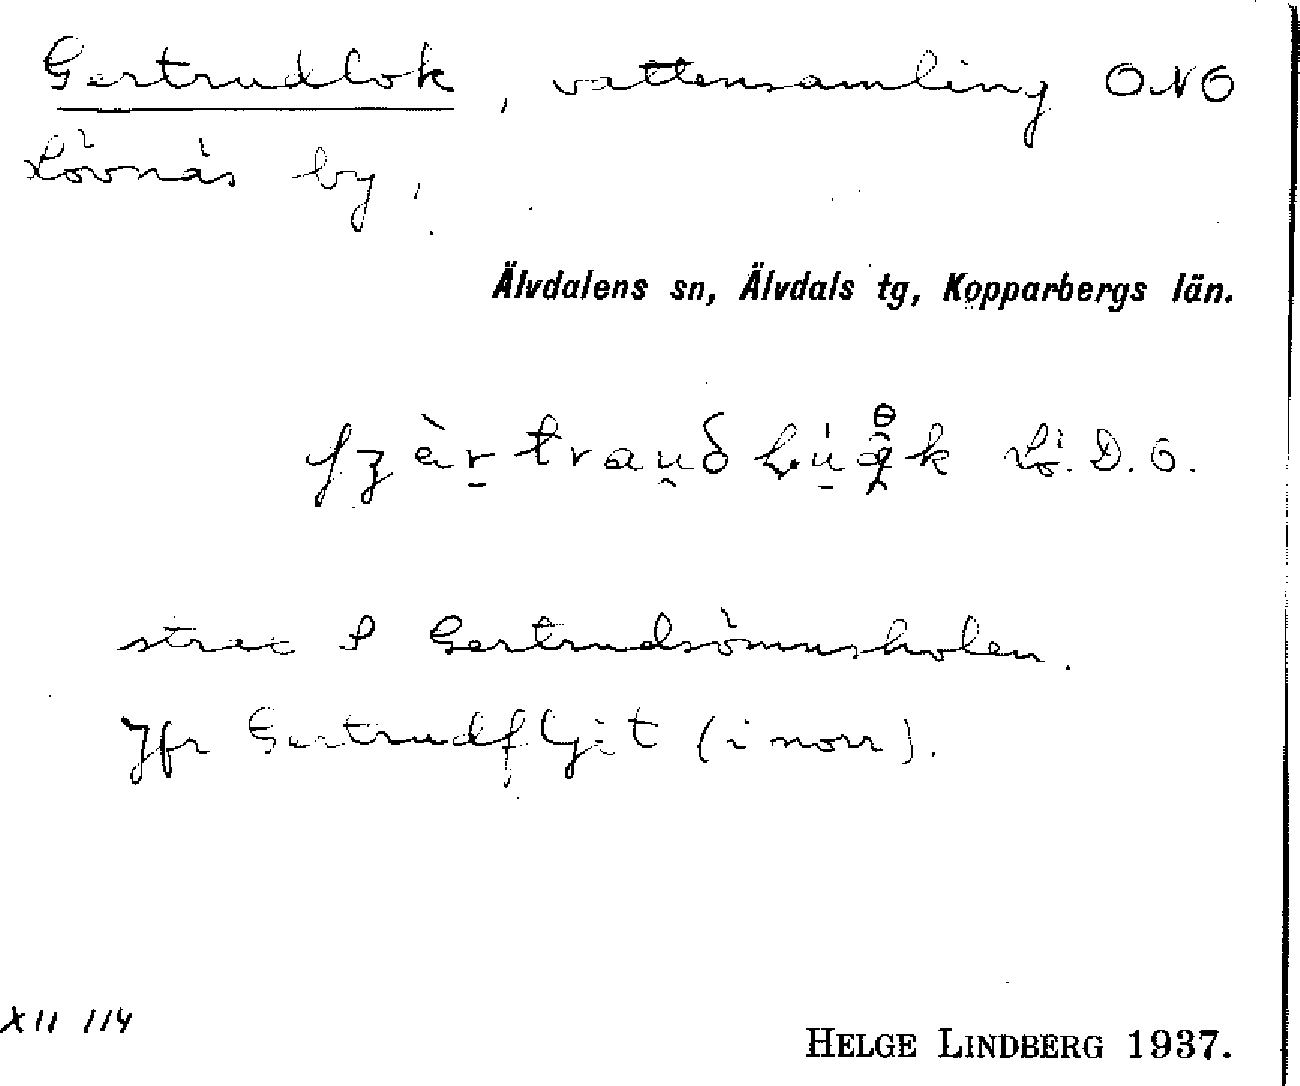 Gertrudlok, vattensamling ONO
Lövnäs by.
Älvdalens sn, Älvdals tg, Kopparbergs län.
Lö. D. O.
strax S Gertrudsömnsholen.
Jfr Gertrudfljit (i norr).
XII 114
HELGE LINDBERG 1937.